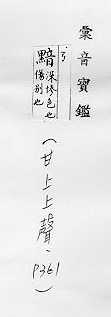 彙音寶鑑
ㄋ
黯 深慘色也
傷別也
(甘上上聲,P361)